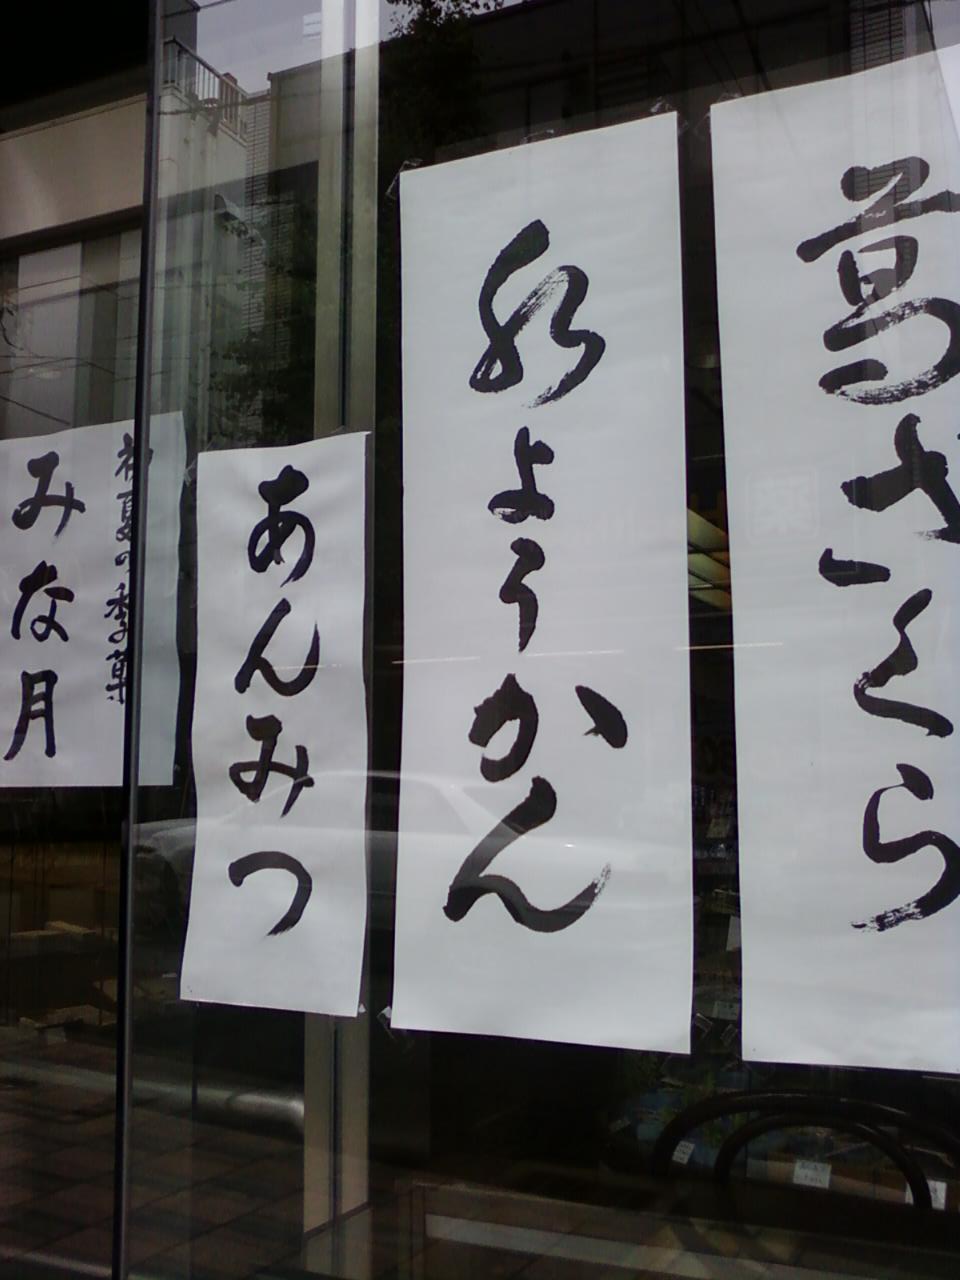 葛さくら
水ようかん
あんみつ
初夏の季菓
みな月